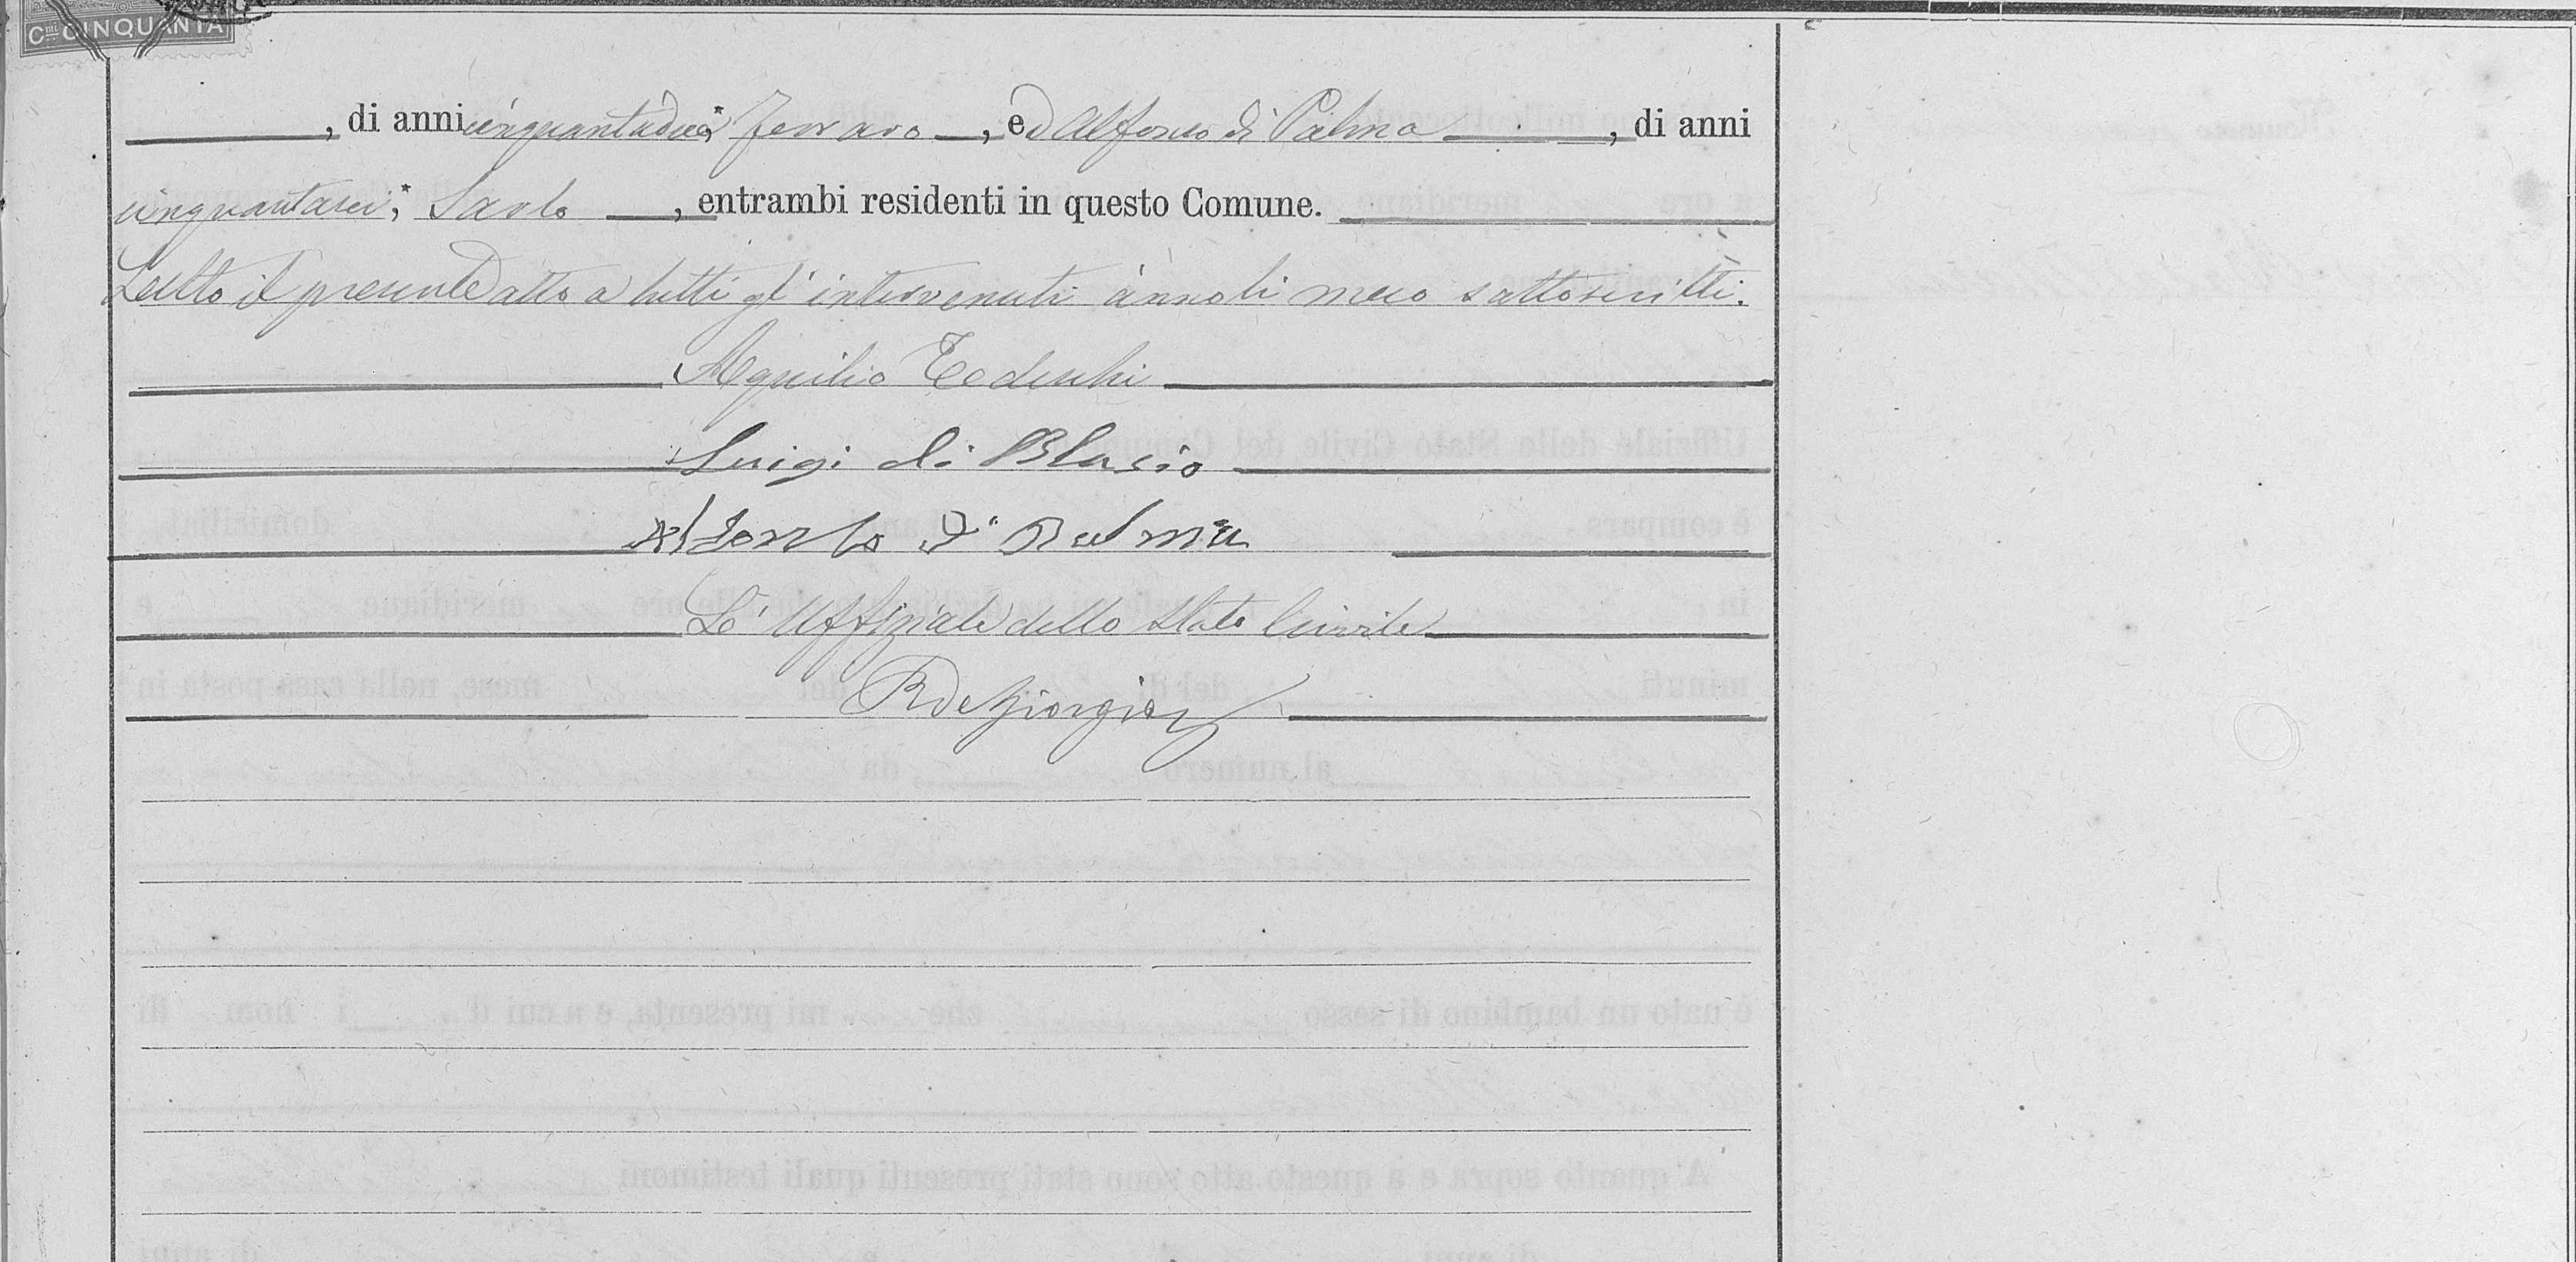 CMI CINQUANTA
, di anni cinquantadue, ferraro, ed Alfonso di Palma, di anni
cinquantasei, Sarto, entrambi residenti in questo Comune.
Letto il presente atto a tutti gl'intervenuti ànno li meco sottoscritti.
Aquilio Tedeschi
Luigi di Blasio
Alfonso di Palma
Lo Uffiziale dello Stato Civile
R de Giorgio